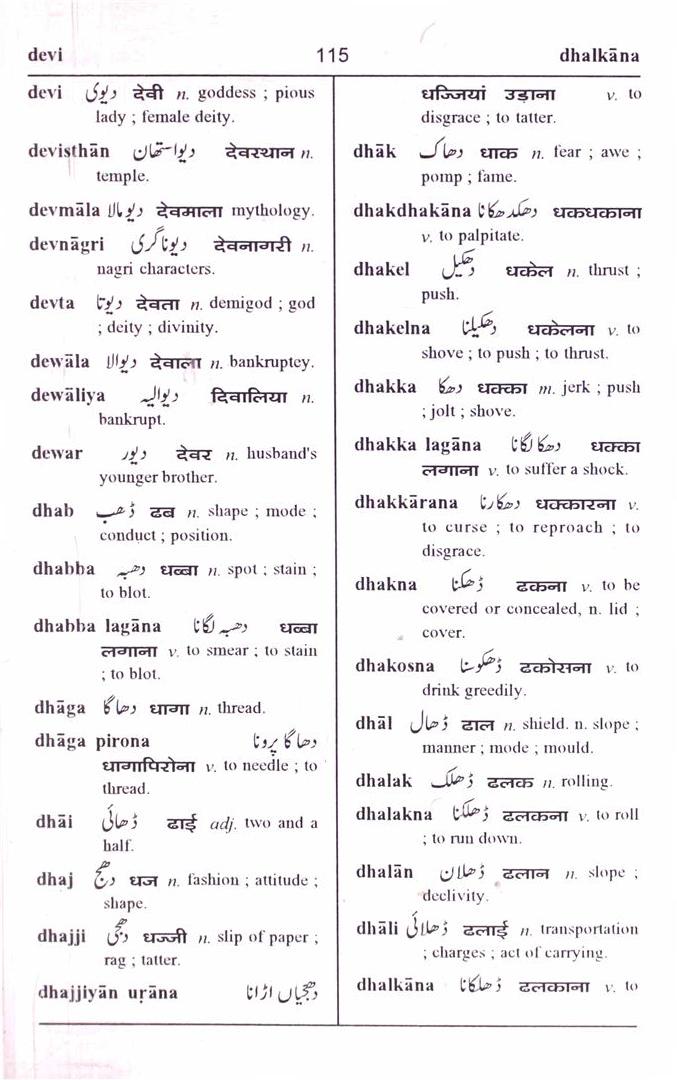 devi 115 dhalkāna
devi دیوی देवी n. goddess ; pious
lady ; female deity.
devisthān دیواستھان देवस्थान n.
temple.
devmāla دیومالا देवमाला mythology.
devnāgri دیوناگری देवनागरी n.
nagri characters.
devta دیوتا देवता n. demigod ; god
; deity ; divinity.
dewāla دیوالا देवाला n. bankruptey.
dewāliya دیوالیہ दिवालिया n.
bankrupt.
dewar دیور देवर n. husband's
younger brother.
dhab ڈھب ढब n. shape ; mode ;
conduct ; position.
dhabba دھبہ धब्बा n. spot ; stain ;
to blot.
dhabba lagāna دھبہ لگانا धब्बा
लगाना v. to smear ; to stain
; to blot.
dhāga دھاگا धागा n. thread.
dhāga pirona دھاگا پرونا
धागापिरोना v. to needle ; to
thread.
dhāi ڈھائی ढाई adj. two and a
half.
dhaj دھج धज n. fashion ; attitude ;
shape.
dhajji دھجی धज्जी n. slip of paper ;
rag ; tatter.
dhajjiyān uṛāna دھجیاں اڑانا
धज्जियां उड़ाना v. to
disgrace ; to tatter.
dhāk دھاک धाक n. fear ; awe ;
pomp ; fame.
dhakdhakāna دھکدھکانا धकधकाना
v. to palpitate.
dhakel دھکیل धकेल n. thrust ;
push.
dhakelna دھکیلنا धकेलना v. to
shove ; to push ; to thrust.
dhakka دھکا धक्का m. jerk ; push
; jolt ; shove.
dhakka lagāna دھکا لگانا धक्का
लगाना v. to suffer a shock.
dhakkārana دھکارنا धक्कारना v.
to curse ; to reproach ; to
disgrace.
dhakna ڈھکنا ढकना v. to be
covered or concealed, n. lid ;
cover.
dhakosna ڈھکوسنا ढकोसना v. to
drink greedily.
dhāl ڈھال ढाल n. shield. n. slope ;
manner ; mode ; mould.
dhalak ڈھلک ढलक n. rolling.
dhalakna ڈھلکنا ढलकना v. to roll
; to run down.
dhalān ڈھلان ढलान n. slope ;
declivity.
dhāli ڈھلائی ढलाई n. transportation
; charges ; act of carrying.
dhalkāna ڈھلکانا ढलकाना v. to